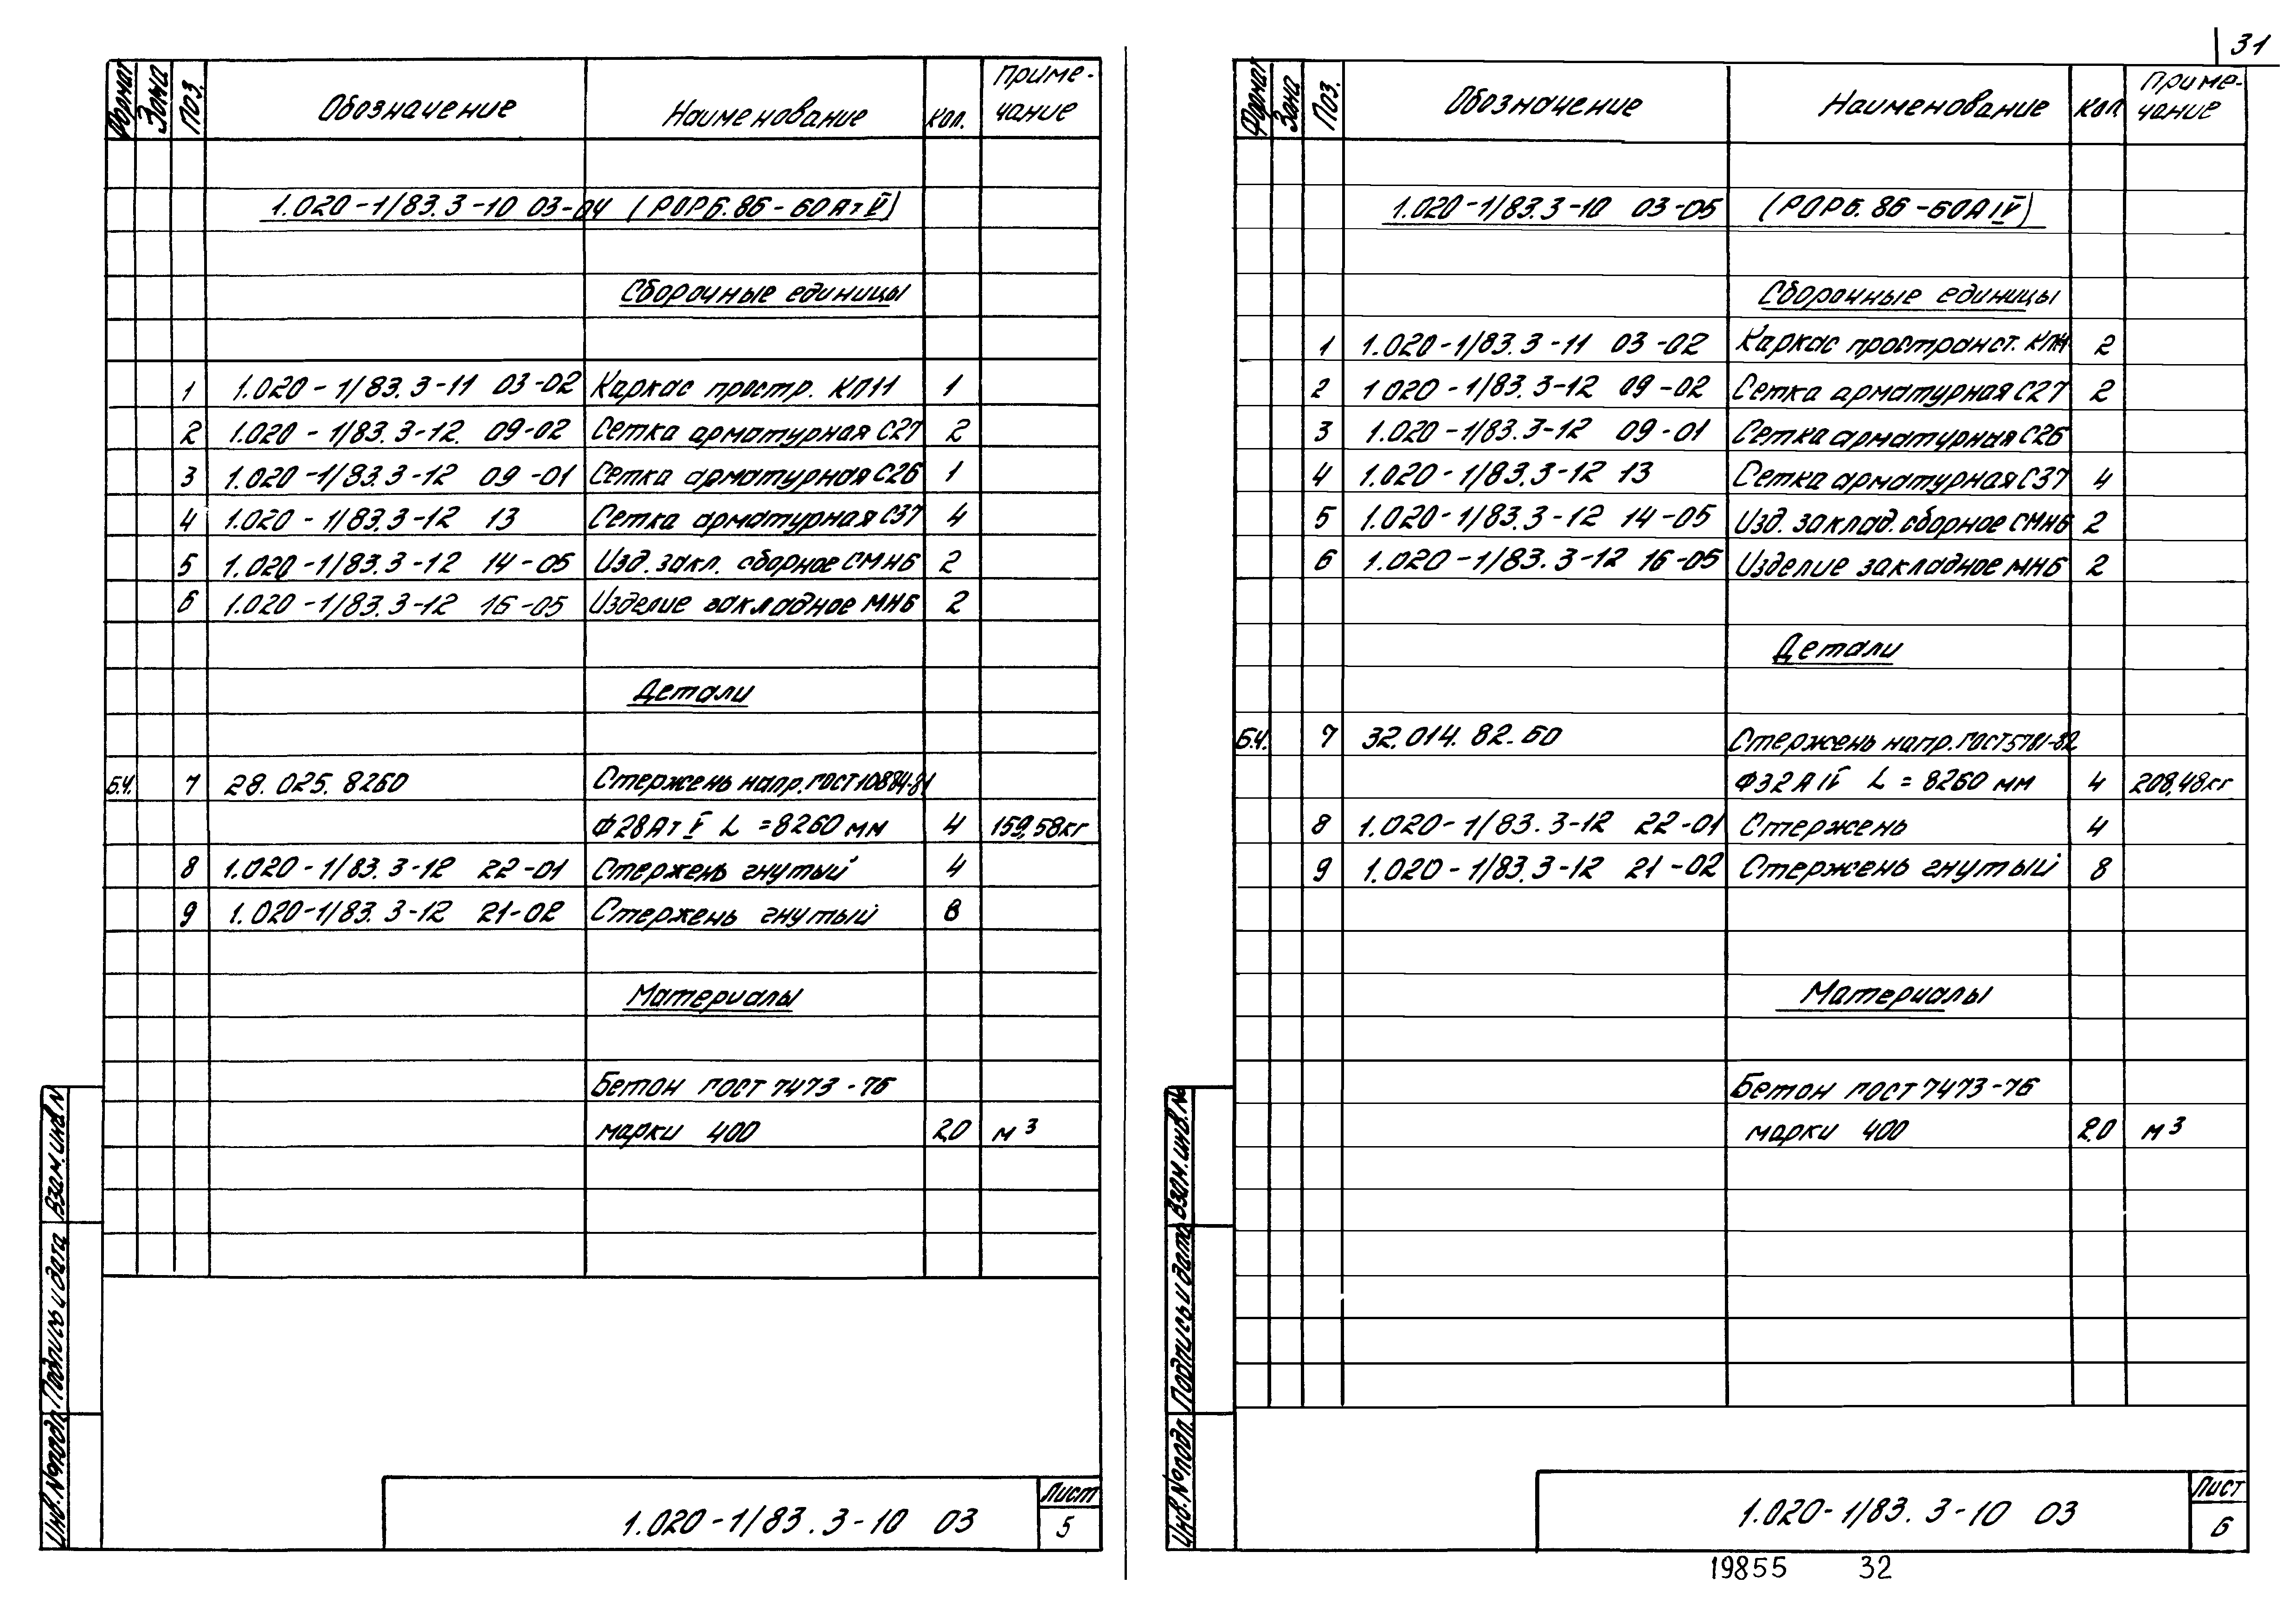 31
Формат Зона Поз. Обозначение Наименование Кол. Приме-
чание
1.020-1/83.3-10 03-04 (РОР6.86-60АтV)
Сборочные единицы
1 1.020-1/83.3-11 03-02 Каркас простр. КП11 1
2 1.020-1/83.3-12. 09-02 Сетка арматурная С27 2
3 1.020-1/83.3-12 09-01 Сетка арматурная С26 1
4 1.020-1/83.3-12 13 Сетка арматурная С37 4
5 1.020-1/83.3-12 14-05 Изд. закл. сборное СМН6 2
6 1.020-1/83.3-12 16-05 Изделие закладное МН6 2
Детали
Б.ч. 7 28.025.8260 Стержень напр. ГОСТ 10884-81
Ф28АтV L=8260 мм 4 159,58кг
8 1.020-1/83.3-12 22-01 Стержень гнутый 4
9 1.020-1/83.3-12 21-02 Стержень гнутый 8
Материалы
Бетон ГОСТ 7473-76
марки 400 2,0 м³
Взам. инв N
Подпись и дата
Инв. № подл
1.020-1/83.3-10 03
Лист
5
Формат Зона Поз. Обозначение Наименование Кол. Приме-
чание
1.020-1/83.3-10 03-05 (РОР6.86-60АIV)
Сборочные единицы
1 1.020-1/83.3-11 03-02 Каркас пространст. 2
2 1.020-1/83.3-12 09-02 Сетка арматурная С27 2
3 1.020-1/83.3-12 09-01 Сетка арматурная С26
4 1.020-1/83.3-12 13 Сетка арматурная С37 4
5 1.020-1/83.3-12 14-05 Изд. заклад. сборное СМН6 2
6 1.020-1/83.3-12 16-05 Изделие закладное МН6 2
Детали
Б.ч. 7 32.014.82.60 Стержень напр. ГОСТ 5781-82
Ф32АIV L=8260 мм 4 208,48кг
8 1.020-1/83.3-12 22-01 Стержень 4
9 1.020-1/83.3-12 21-02 Стержень гнутый 8
Материалы
Бетон ГОСТ 7473-76
марки 400 2,0 м³
Взам. инв. №
Подпись и дата
Инв. № подл.
1.020-1/83.3-10 03
Лист
6
19855 32